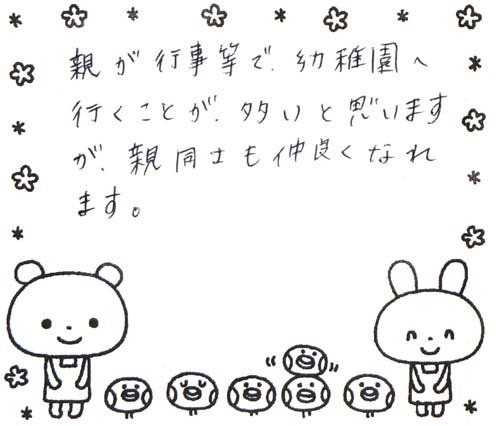 親が行事等で、幼稚園へ
行くことが、多いと思います
が、親同士も仲良くなれ
ます。